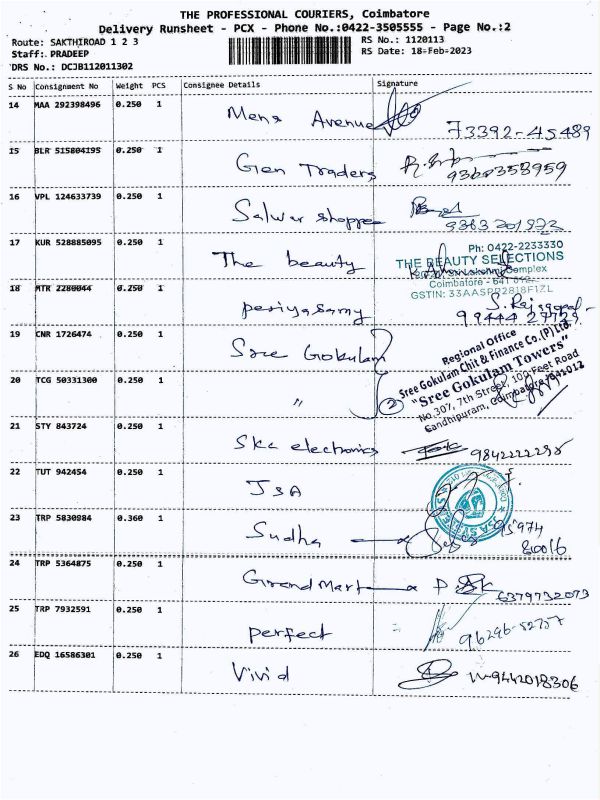 THE PROFESSIONAL COURIERS, Coimbatore
Delivery Runsheet - PCX - Phone No.:0422-3505555 - Page No.:2
Route: SAKTHIROAD 1 2 3
RS No.: 1120113
Staff: PRADEEP
RS Date: 18-Feb-2023
DRS No.: DCJB112011302
S No Consignment No Weight PCS Consignee Details Signature
14 MAA 292398496 0.250 1 Mens Avenue
73392-45489
15 BLR 515804195 0.250 1 Gen Traders
9360353959
16 VPL 124633739 0.250 1 Salwar shoppee
9363201973
17 KUR 528885095 0.250 1 The beauty
Ph: 0422-2233330
THE BEAUTY SELECTIONS
Complex
Coimbatore - 641 012.
GSTIN:
18 MTR 2280044 0.250 1 periyasamy
S. Rajagopal
99444 27729
19 CNR 1726474 0.250 1 Sree Gokulam
20 TCG 50331300 0.250 1 "
2
Regional Office
Sree Gokulam Chit & Finance Co.(P) Ltd.
"Sree Gokulam Towers"
No.307, 7th Street, 100 Feet Road
Gandhipuram, Coimbatore-641012
21 STY 843724 0.250 1 Skc electronics
22 TUT 942454 0.250 1 JSA
23 TRP 5830984 0.360 1 Sudha
95974
80016
24 TRP 5364875 0.250 1 Grand Mart
6379732073
25 TRP 7932591 0.250 1 perfect
96296-52757
26 EDQ 16586301 0.250 1 Vivid
9442018306